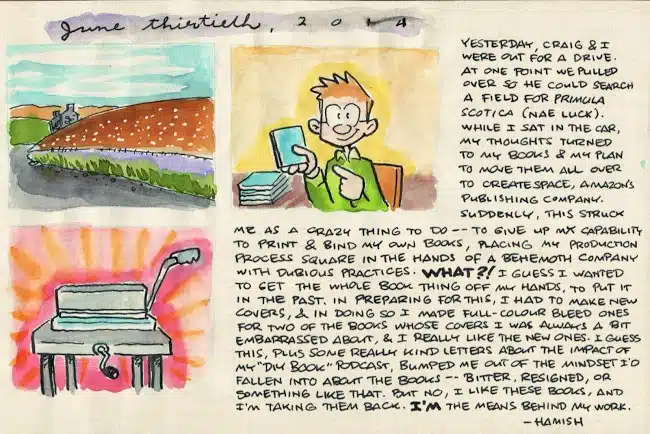 June thirtieth, 2014
YESTERDAY, CRAIG & I
WERE OUT FOR A DRIVE.
AT ONE POINT WE PULLED
OVER SO HE COULD SEARCH
A FIELD FOR PRIMULA
SCOTICA (NAE LUCK).
WHILE I SAT IN THE CAR,
MY THOUGHTS TURNED
TO MY BOOKS & MY PLAN
TO MOVE THEM ALL OVER
TO CREATESPACE, AMAZON'S
PUBLISHING COMPANY.
SUDDENLY, THIS STRUCK
ME AS A CRAZY THING TO DO -- TO GIVE UP MY CAPABILITY
TO PRINT & BIND MY OWN BOOKS, PLACING MY PRODUCTION
PROCESS SQUARE IN THE HANDS OF A BEHEMOTH COMPANY
WITH DUBIOUS PRACTICES. WHAT?! I GUESS I WANTED
TO GET THE WHOLE BOOK THING OFF MY HANDS, TO PUT IT
IN THE PAST. IN PREPARING FOR THIS, I HAD TO MAKE NEW
COVERS, & IN DOING SO I MADE FULL-COLOUR BLEED ONES
FOR TWO OF THE BOOKS WHOSE COVERS I WAS ALWAYS A BIT
EMBARRASSED ABOUT, & I REALLY LIKE THE NEW ONES. I GUESS
THIS, PLUS SOME REALLY KIND LETTERS ABOUT THE IMPACT OF
MY "DIY BOOK" PODCAST, BUMPED ME OUT OF THE MINDSET I'D
FALLEN INTO ABOUT THE BOOKS -- BITTER, RESIGNED, OR
SOMETHING LIKE THAT. BUT NO, I LIKE THESE BOOKS, AND
I'M TAKING THEM BACK. I'M THE MEANS BEHIND MY WORK.
-HAMISH